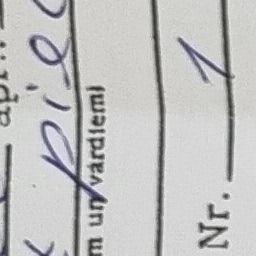 apr..
pie
m un vārdiem)
Nr. 1